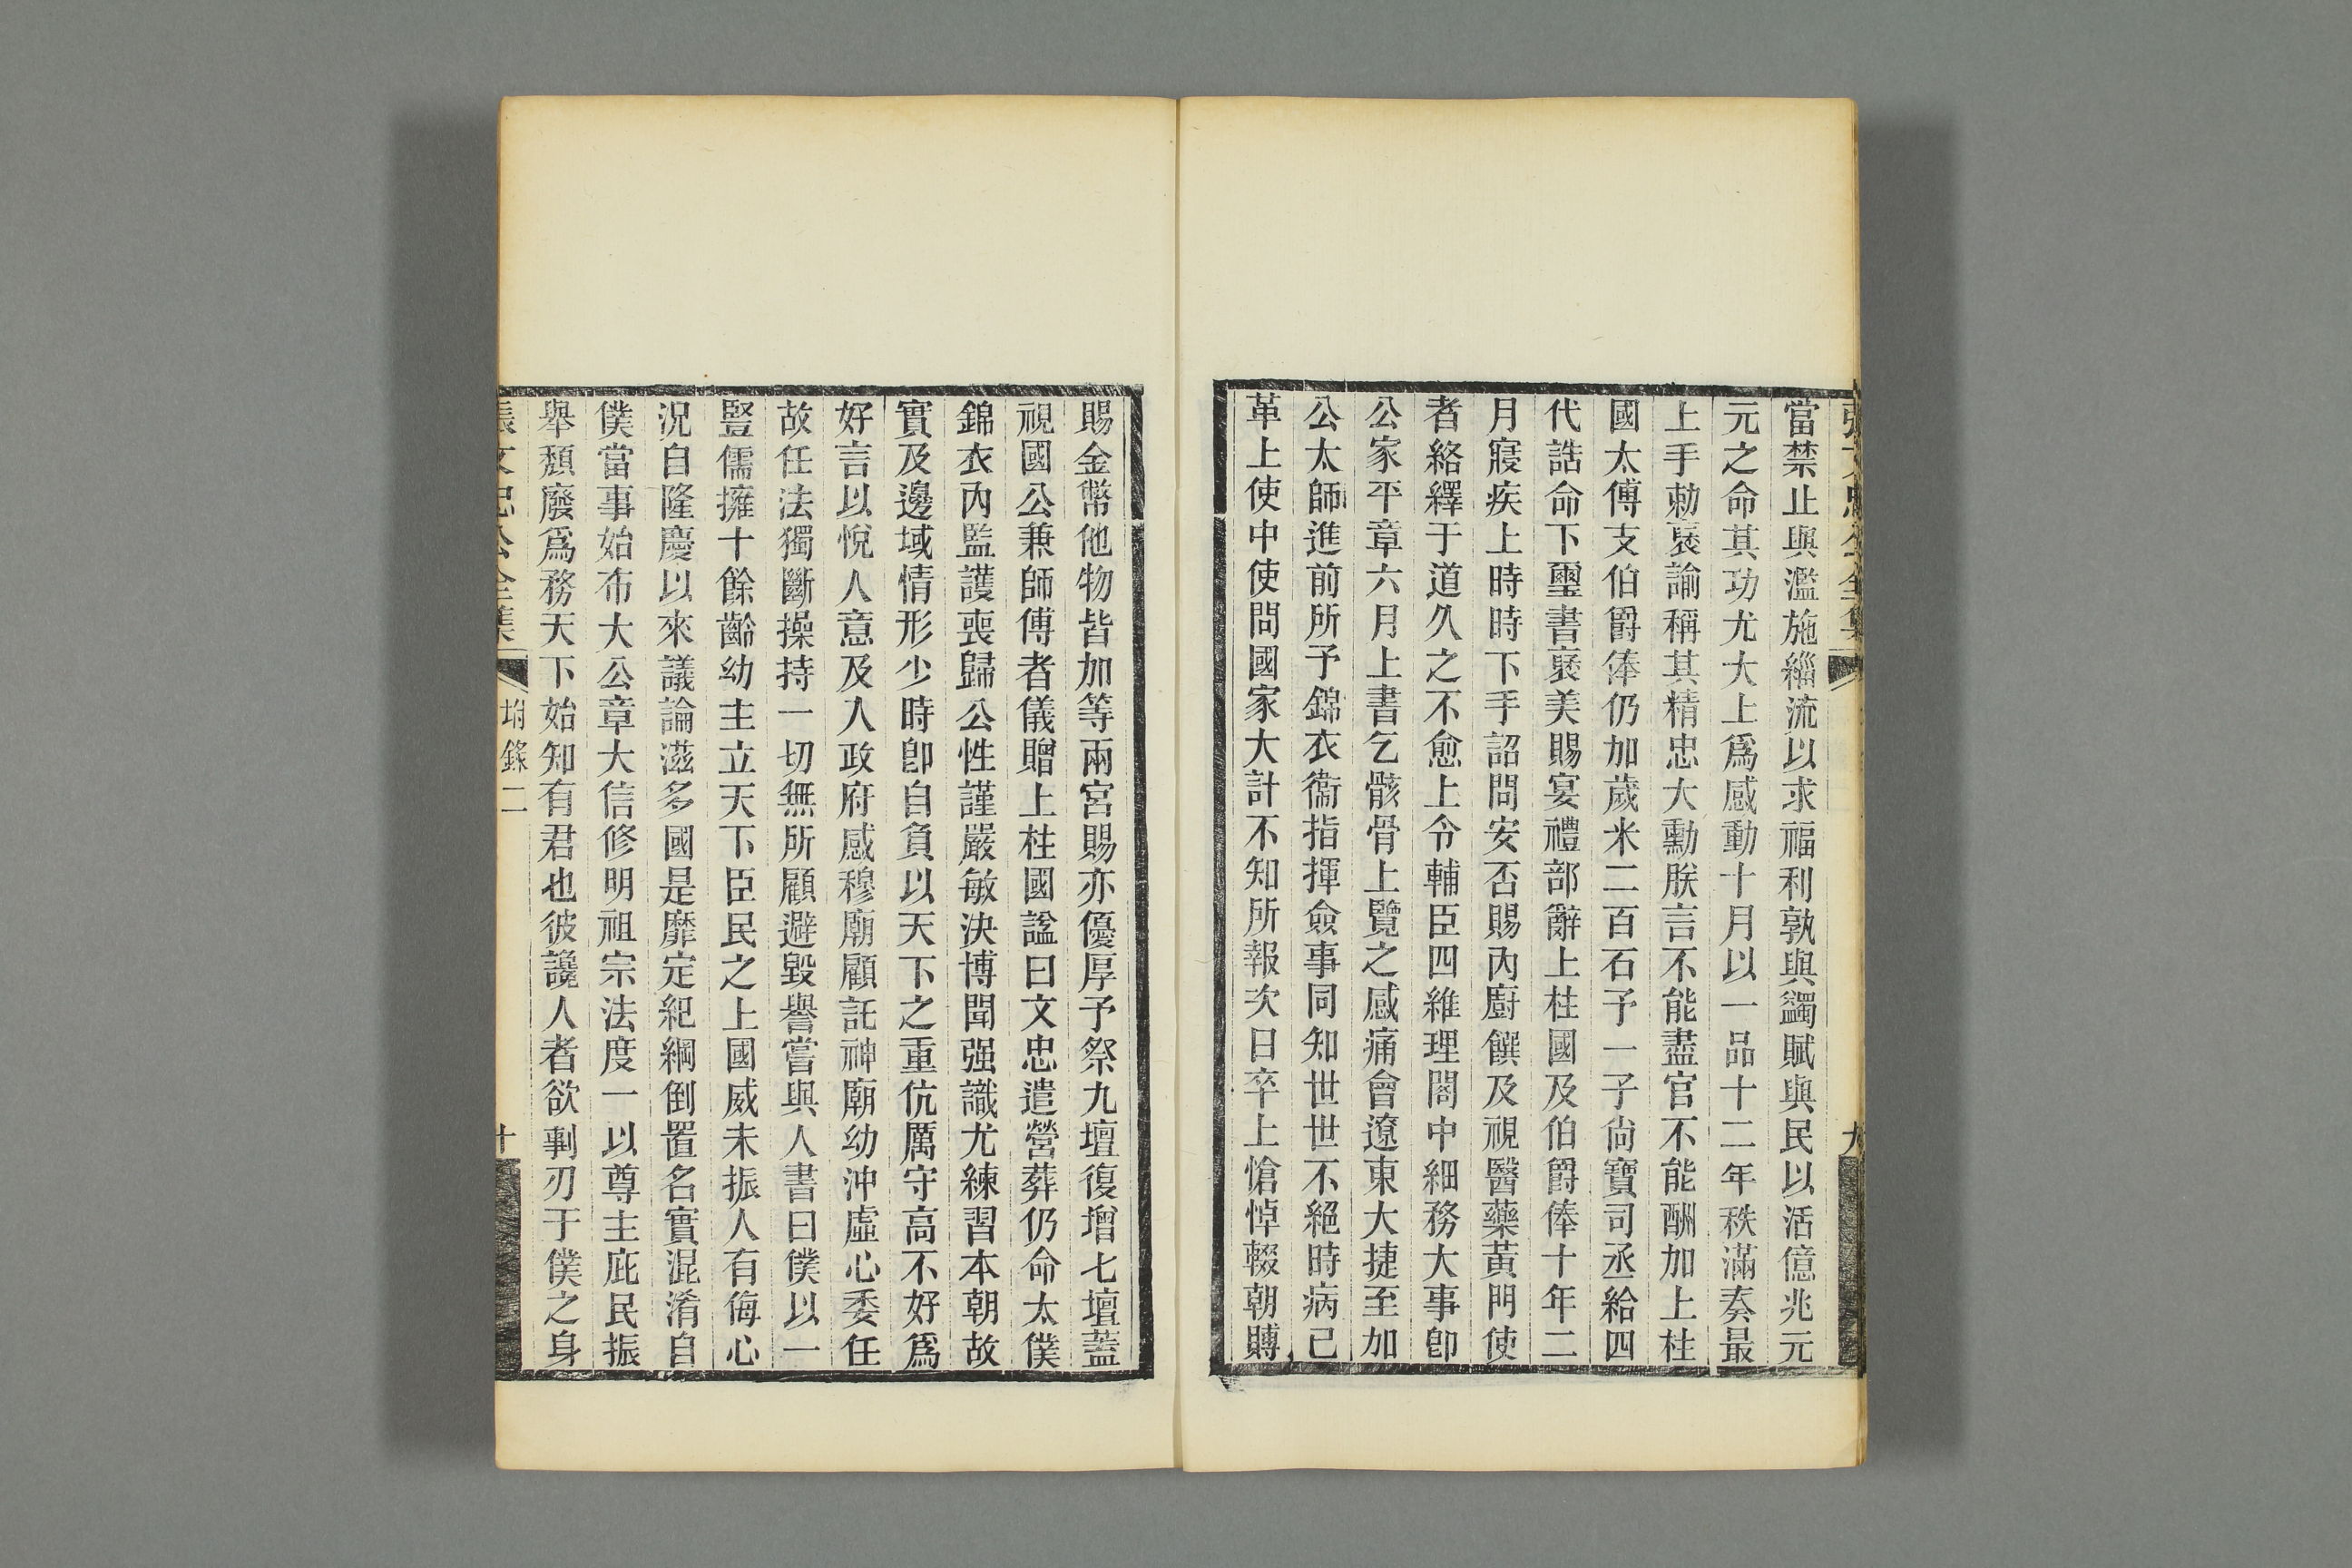 當禁止與濫施緇流以求福利孰與蠲賦與民以活億兆元
元之命其功尤大上爲感動十月以一品十二年秩滿奏最
上手勅褒諭稱其精忠大勳朕言不能盡官不能酬加上柱
國太傅支伯爵俸仍加歲米二百石予一子尙寶司丞給四
代誥命下璽書褒美賜宴禮部辭上柱國及伯爵俸十年二
月寢疾上時時下手詔問安否賜內廚饌及視醫藥黃門使
者絡繹于道久之不愈上令輔臣四維理閣中細務大事卽
公家平章六月上書乞骸骨上覽之感痛會遼東大捷至加
公太師進前所予錦衣衞指揮僉事同知世世不絕時病已
革上使中使問國家大計不知所報次日卒上愴悼輟朝賻
賜金幣他物皆加等兩宮賜亦優厚予祭九壇復增七壇蓋
視國公兼師傅者儀贈上柱國諡曰文忠遣營葬仍命太僕
錦衣內監護喪歸公性謹嚴敏決博聞强識尤練習本朝故
實及邊域情形少時卽自負以天下之重伉厲守高不好爲
好言以悅人意及入政府感穆廟顧託神廟幼沖虛心委任
故任法獨斷操持一切無所顧避毀譽嘗與人書曰僕以一
豎儒擁十餘齡幼主立天下臣民之上國威未振人有侮心
況自隆慶以來議論滋多國是靡定紀綱倒置名實混淆自
僕當事始布大公章大信修明祖宗法度一以尊主庇民振
舉頹廢爲務天下始知有君也彼讒人者欲剚刃于僕之身
張文忠公全集 附錄二 十